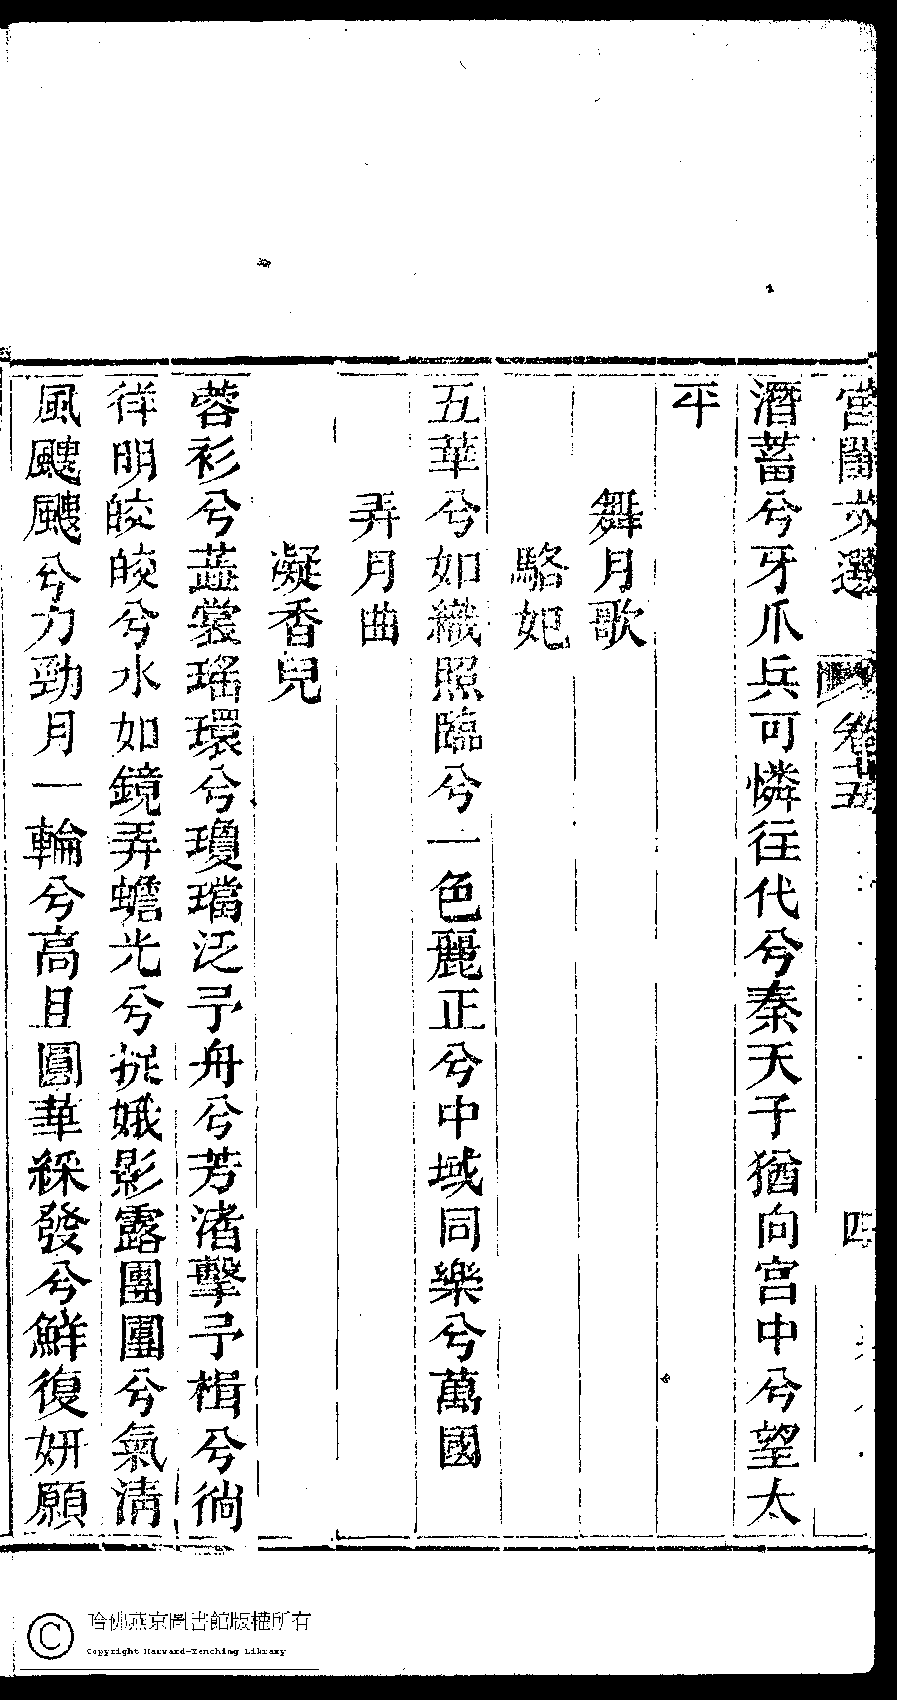 宮闈文選 卷十五 四
潛蓄兮牙爪兵可憐往代兮秦天子猶向宮中兮望太
平
舞月歌
駱妃
五華兮如織照臨兮一色麗正兮中域同樂兮萬國
弄月曲
凝香兒
蓉衫兮蕋裳瑤環兮瓊璫泛予舟兮芳渚擊予楫兮徜
徉明皎皎兮水如鏡弄蟾光兮捉娥影露團團兮氣清
風颼颼兮力勁月一輪兮高且圓華綵發兮鮮復妍願
哈佛燕京圖書館版權所有
Copyright Harvard-Yenching Library